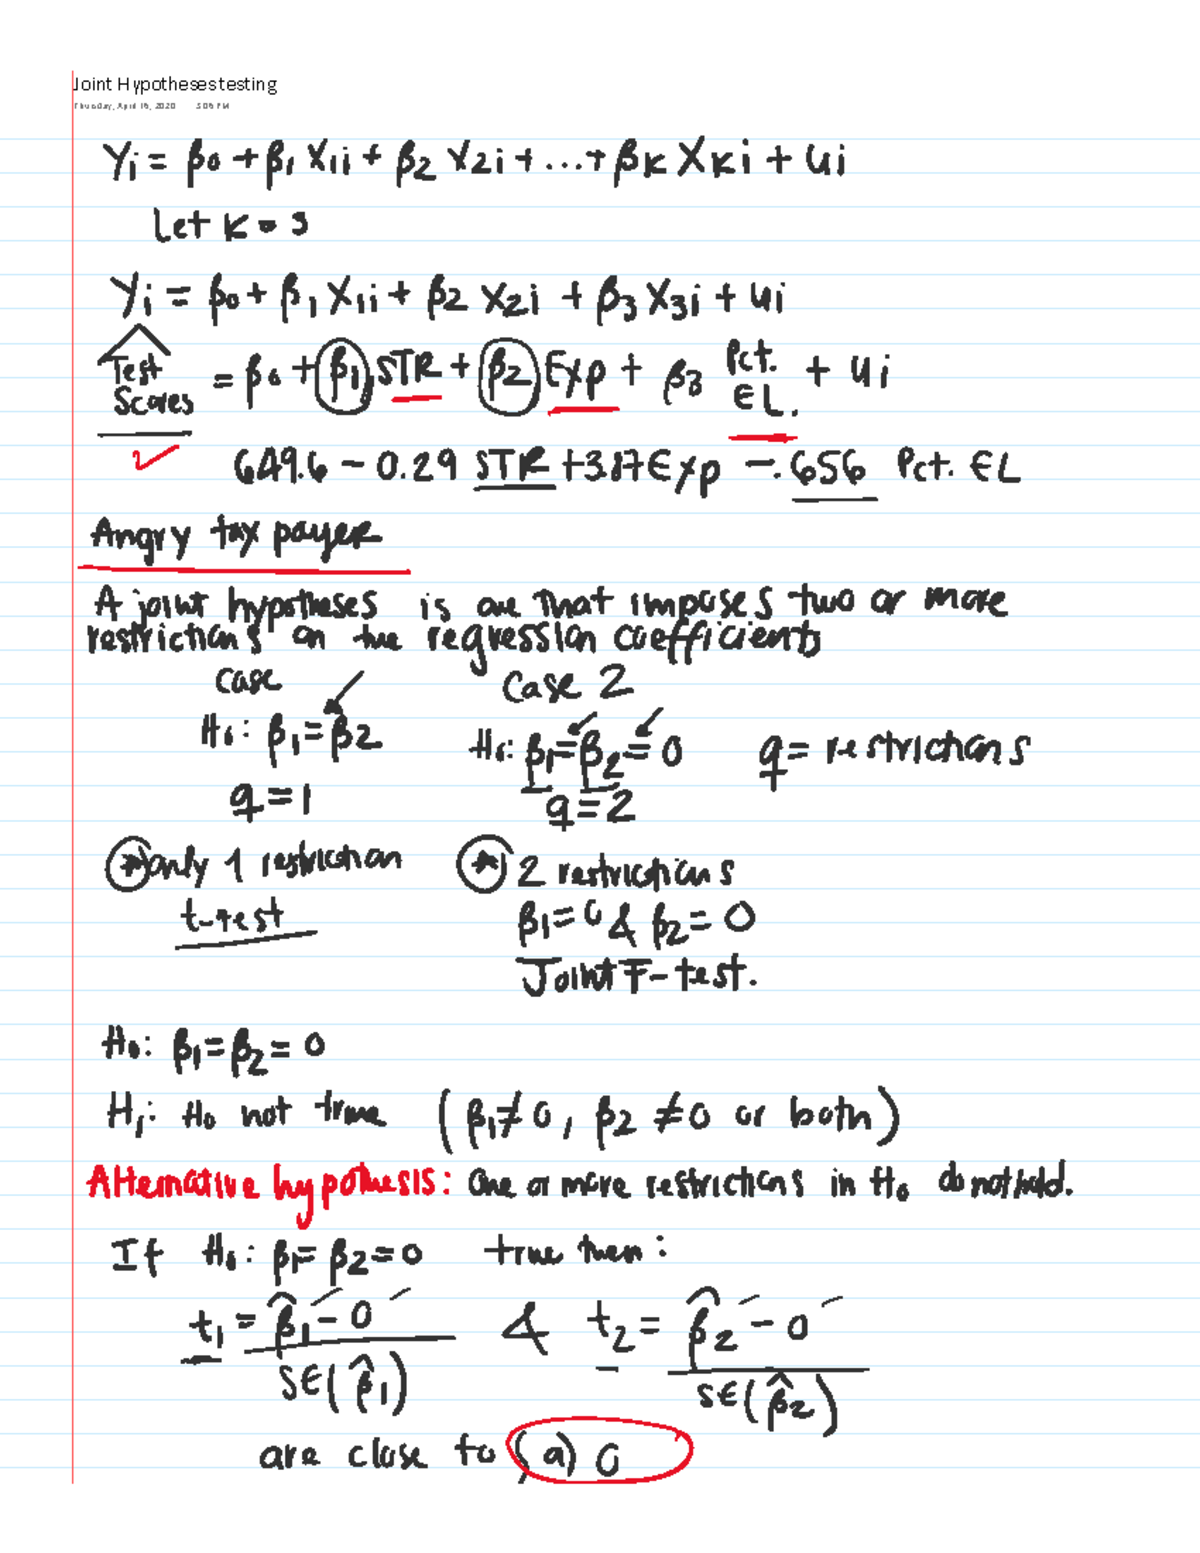 Joint Hypotheses testing
Thursday, April 16, 2020 3:06 PM
Yi = β0 + β1 X1i + β2 X2i + ... + βK XKi + ui
Let K = 3
Yi = β0 + β1 X1i + β2 X2i + β3 X3i + ui
Test Scores = β0 + β1 STR + β2 Exp + β3 Pct. EL. + ui
649.6 - 0.29 STR + 3.87 Exp - .656 Pct. EL
Angry tax payer
A joint hypotheses is one that imposes two or more
restrictions on the regression coefficients
case Case 2
H0: β1 = β2 H0: β1 = β2 = 0 q = restrictions
q = 1 q = 2
* only 1 restriction * 2 restrictions
t-test β1 = 0 & β2 = 0
Joint F-test.
H0: β1 = β2 = 0
H1: H0 not true (β1 ≠ 0, β2 ≠ 0 or both)
Alternative hypothesis: One or more restrictions in H0 do not hold.
If H0: β1 = β2 = 0 true then:
t1 = β̂1 - 0 & t2 = β̂2 - 0
SE(β̂1) SE(β̂2)
are close to (a) 0